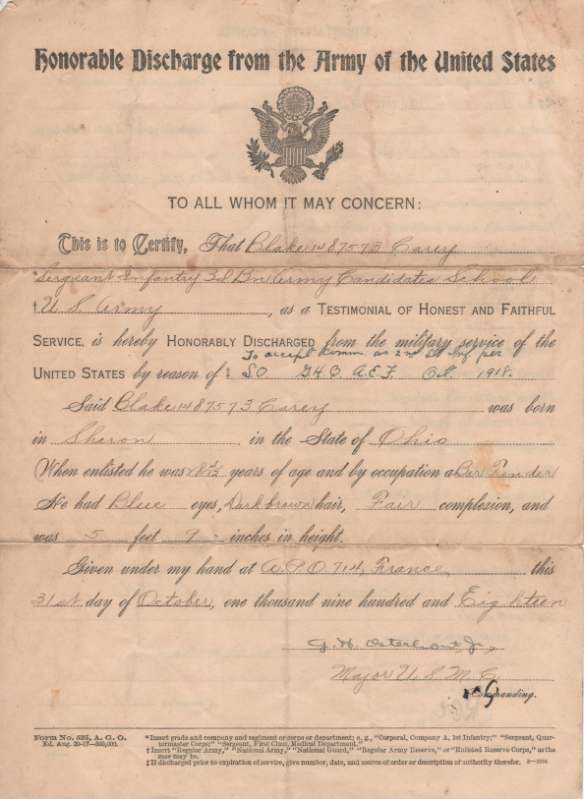 Honorable Discharge from the Army of the United States
TO ALL WHOM IT MAY CONCERN:
This is to Certify, That Blake 1487573 Carey
*Sergeant Infantry 3d Bn Army Candidates School
†U S Army, as a TESTIMONIAL OF HONEST AND FAITHFUL
SERVICE, is hereby HONORABLY DISCHARGED from the military service of the
To accept Comm as 2nd Lt Inf per
UNITED STATES by reason of ‡ SO G.H.Q. A.E.F. 1918.
Said Blake 1487573 Carey was born
in Sharon, in the State of Ohio
When enlisted he was years of age and by occupation a Bar Tender
He had Blue eyes, Dark brown hair, Fair complexion, and
was 5 feet inches in height.
Given under my hand at A.P.O. 714, France this
31st day of October, one thousand nine hundred and Eighteen
Major U S M C
Commanding.
Form No. 525, A. G. O.
Ed. Aug. 20-17—
*Insert grade and company and regiment or corps or department; e. g., "Corporal, Company A, 1st Infantry;" "Sergeant, Quartermaster Corps;" "Sergeant, First Class, Medical Department."
†Insert "Regular Army," "National Army," "National Guard," "Regular Army Reserve," or "Enlisted Reserve Corps," as the case may be.
‡If discharged prior to expiration of service, give number, date, and source of order or description of authority therefor.